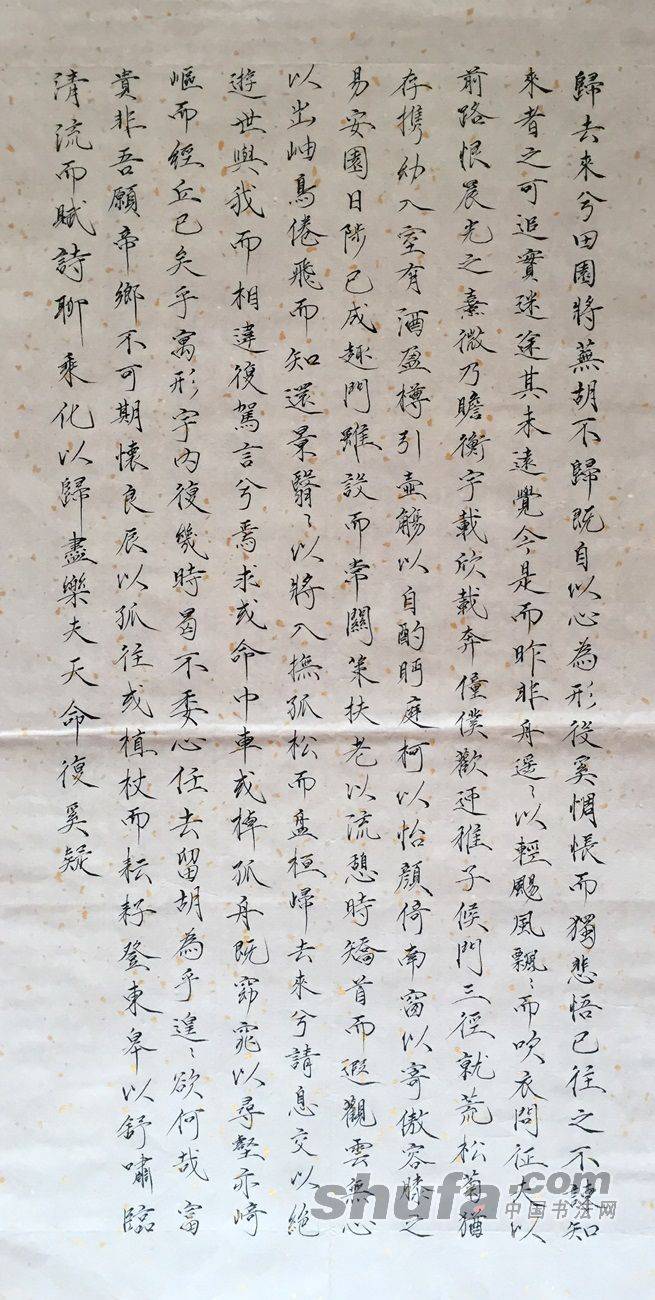 歸去來兮田園將蕪胡不歸既自以心為形役奚惆悵而獨悲悟已往之不諫知
來者之可追實迷途其未遠覺今是而昨非舟遥〻以輕颺風飄〻而吹衣問征夫以
前路恨晨光之熹微乃瞻衡宇載欣載奔僮僕歡迎稚子候門三徑就荒松菊猶
存携幼入室有酒盈樽引壺觴以自酌眄庭柯以怡顏倚南窗以寄傲容膝之
易安園日陟已成趣門雖設而常關策扶老以流憩時矯首而遐觀雲無心
以出岫鳥倦飛而知還景翳〻以將入撫孤松而盘桓歸去來兮請息交以絕
遊世與我而相違復駕言兮焉求或命巾車或棹孤舟既窈窕以尋壑亦崎
嶇而經丘已矣乎寓形宇內復幾時曷不委心任去留胡為乎遑〻欲何哉富
貴非吾願帝鄉不可期懷良辰以孤往或植杖而耘耔登東皋以舒嘯臨
清流而賦詩聊乘化以歸盡樂夫天命復奚疑
shufa.com
中国书法网